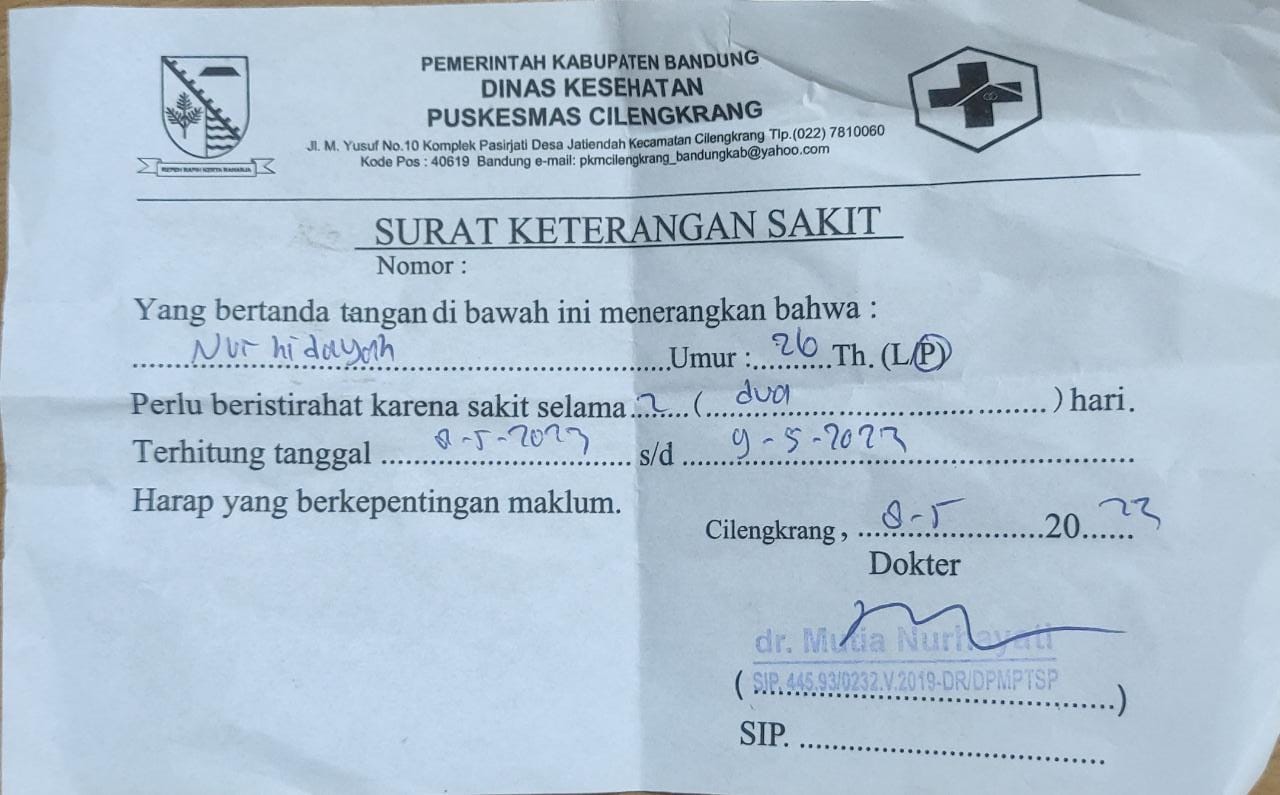 PEMERINTAH KABUPATEN BANDUNG
DINAS KESEHATAN
PUSKESMAS CILENGKRANG
Jl. M. Yusuf No.10 Komplek Pasirjati Desa Jatiendah Kecamatan Cilengkrang Tlp.(022) 7810060
Kode Pos : 40619 Bandung e-mail: pkmcilengkrang_bandungkab@yahoo.com
REPEH RAPIH KERTA RAHARJA
SURAT KETERANGAN SAKIT
Nomor :
Yang bertanda tangan di bawah ini menerangkan bahwa :
Nur hidayah Umur : 26 Th. (L/P)
Perlu beristirahat karena sakit selama 2 ( dua ) hari.
Terhitung tanggal 8-5-2023 s/d 9-5-2023
Harap yang berkepentingan maklum.
Cilengkrang, 8-5 2023
Dokter
dr. Mutia Nurhayati
( SIP. 445.93/0232.V.2019-DR/DPMPTSP )
SIP.